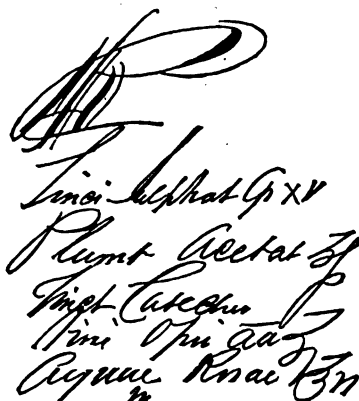 ℞
Zinci Sulphat Gr XV
Plumb Acetat ʒſ
Tinct Catechu
Vini Opii āā ʒ
Aquae Rosae ℥
m